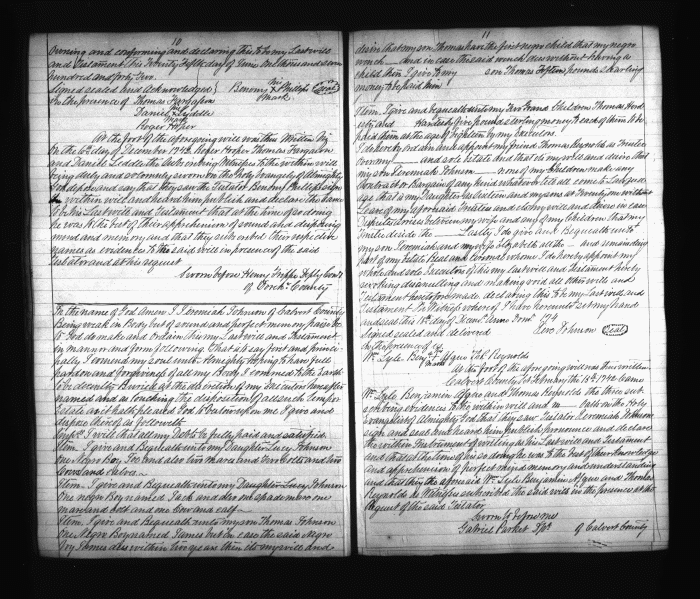 10
Owning and conforming and declaring this to be my Last will
and Testament this Twenty Fifth day of June One thousand seven
hundred and forty two.
Signed sealed and Acknowledged
his
in the presence of Thomas Fargason
Benony X Phillips Seal
mark
Daniel Leddle
mark
Roger Hoper
At the foot of the aforegoing will was thus Written Viz
On the 6th day of December 1742 Roger Hoper Thomas Fargason
and Daniel Leddle the Subscribing Witnesses to the within will
being duly and solemnly sworn on the Holy Evangely of Almighty
God depose and say that they saw the Testator Benony Phillips sign
the within will and heard him publish and declare the same
to be his Last will and Testament that at the time of so doing
he was to the best of their apprehension of sound and disposing
mind and memory and that they subscribed their respective
evidences as evidences to the said will in presence of the said
Testator and at his request
Sworn before Henry Trippe Dpty Com
of Dorchr County
In the name of God Amen I Jeremiah Johnson of Calvert County
Being weak in Body but of sound and perfect memory
to God do make and ordain this my Last will and Testament
in manner and form following That is to say first and princi-
pally I commend my soul unto Almighty hoping to have full
pardon and forgiveness of all my Body I commend to the Earth
to be decently Buried at the discretion of my Executrix hereafter
named and as touching the disposition of all such Tempor
Estate as it hath pleased God to bestow upon me I give and
dispose thereof as followeth
I will that all my Debts be fully paid and satisfied.
Item. I give and Bequeath unto my Daughter Lucy Johnson
One Negro Boy and also two mares and two Colts and two
Cows and Calves.
Item. I give and Bequeath unto my Daughter Lucy Johnson
One negro Boy named Jack and also one spade more one
mare and bolt and one Cow and calf
Item. I give and Bequeath unto my son Thomas Johnson
One Negro Boy named James but in case the said Negro
Boy James dies within two years then its my will and
11
desire that my son Thomas have the first negro child that my negro
wench and in case the said wench dies without having a
child then I give to my son Thomas fifteen pounds sterling
money to be paid him
Item. I give and bequeath unto my two Grand Children Thomas
and five pounds sterling money to each of them to be
paid them at the age of Eighteen by my Executors.
I do hereby ordain and appoint my friend Thomas Reynolds as Trustee
over my and sole Estate and that its my will and desire that
my son Jeremiah Johnson none of my Children make any
Contract or Bargain of any kind whatever till all come to Lawfull
age that is my Daughters at sixteen and my sons at Twenty one without
Leave of my aforesaid Trustee and its my will and desire in case
Disputes arises between my wife and any of my Children that my
Trustee decide the Lastly I do give and Bequeath unto
my son Jeremiah and my wife Elizabeth all the and remaining
part of my Estate Real and Personal whom I do hereby appoint my
whole and sole Executors of this my Last will and Testament hereby
revoking disannulling and making void all other wills and
Testament heretofore made declaring this to be my Last will and
Testament In Witness whereof I have hereunto set my hand
and seal this day of
Signed sealed and delivered Jere. Johnson Seal
In the presence of us
Wm. Lyle Benj. Ague Thos Reynolds
mark
At the foot of the aforegoing will was thus written
Calvert County Sst February the 15th 1742 Came
Wm. Lyle Benjamin Ague and Thomas Reynolds the three sub
scribing evidences to the within will and on the Holy
Evangelist of Almighty God that they saw Testator Jeremiah Johnson
sign and seal and heard him publish pronounce and declare
the within Instrument of writing as his Last will and Testament
and that at the time of his so doing he was to the best of their knowledge
and apprehension of perfect mind memory and understanding
and that they the aforesaid Wm. Lyle Benjamin Ague and Thomas
Reynolds as Witnesses subscribed the said will in the presence at the
Request of the said Testator
Sworn to before me
Gabriel Parker of Calvert County